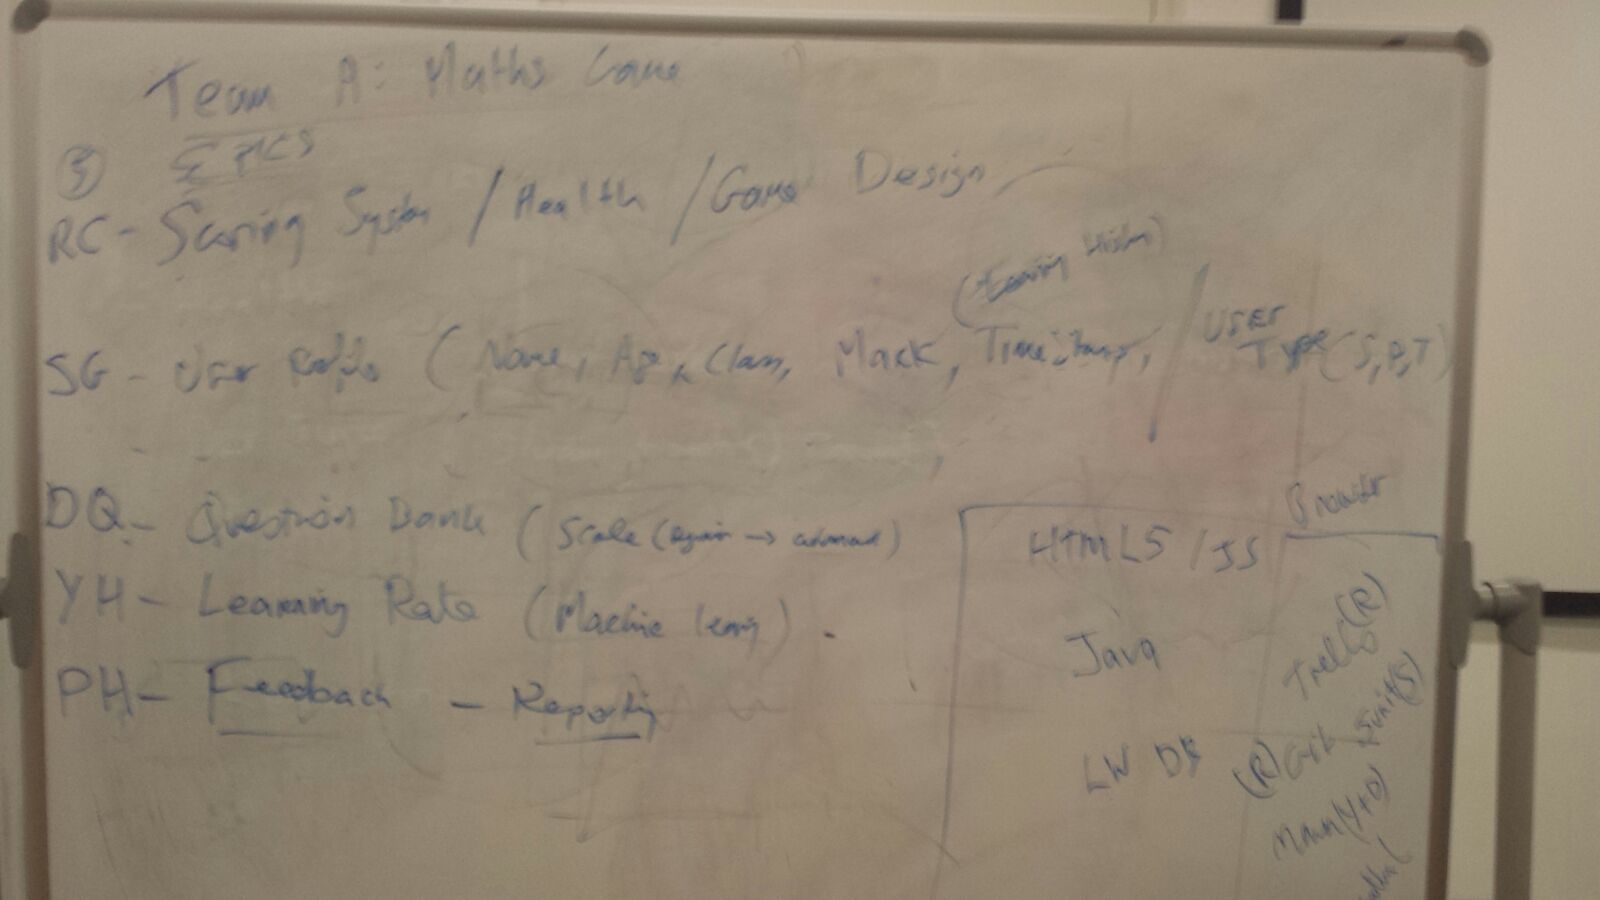 Team A: Maths Game
③ EPICS
RC - Scoring System / Health / Game Design
(Learning History)
SG - User Profile ( Name, Age, Class, Mark, Timestamp, / USER Type (S,P,T)
DQ - Question Bank ( Scale (Beginner → advanced)
YH - Learning Rate ( Machine learning ) .
PH - Feedback - Reporting
Browser
HTML5 / JS
Java
LW DB
Trello (R)
(R) Git Junit (S)
Maven (Y+D)